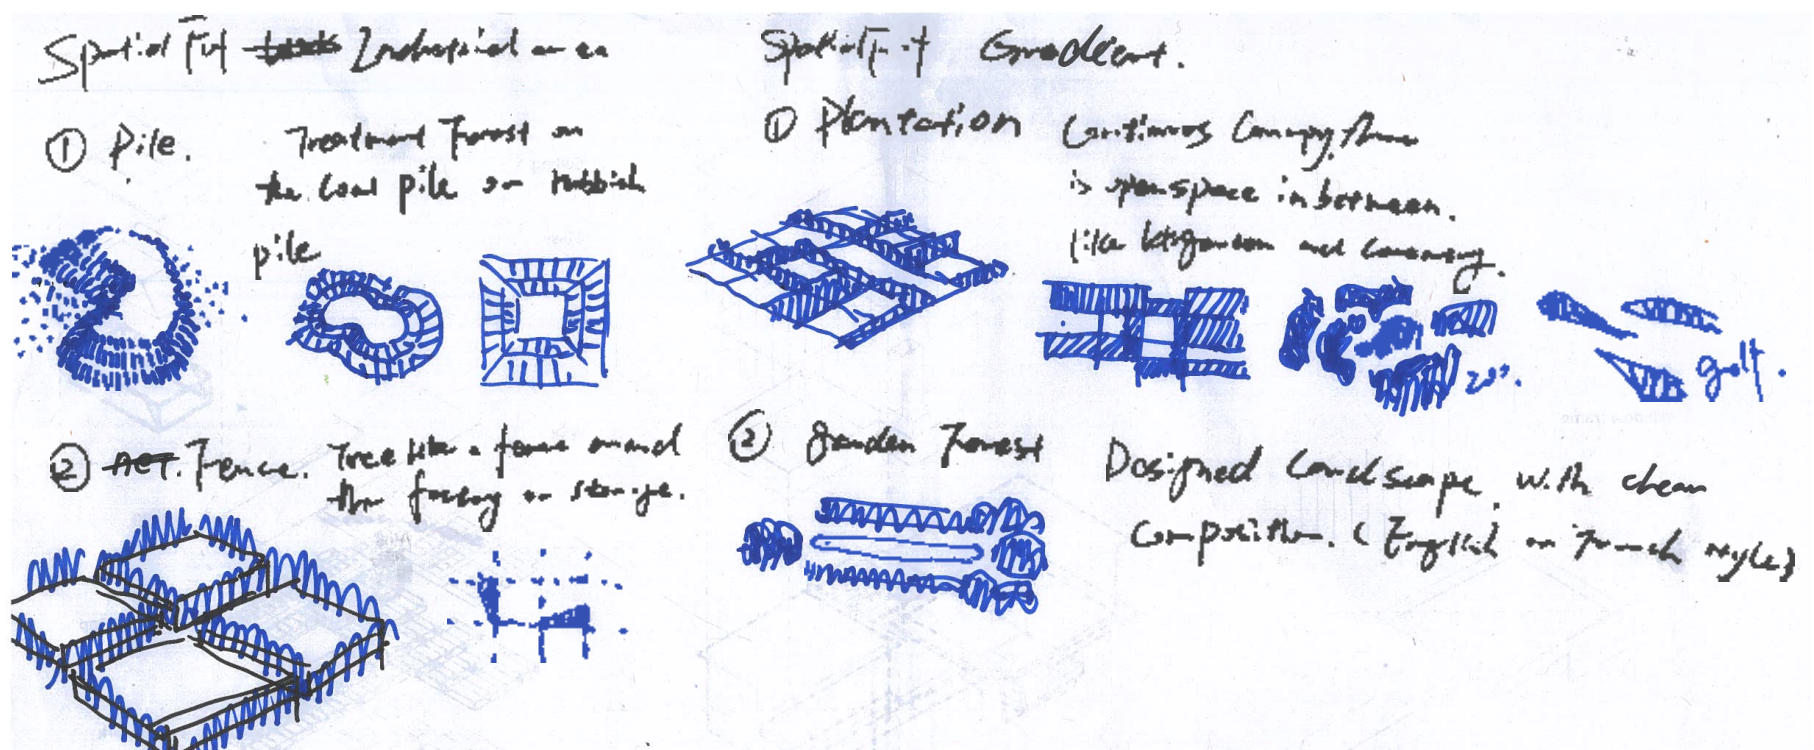 Spatial Fut Industrial area
① Pile.
Treatment Forest on
the Coal pile or rubbish
pile
② Fence.
Tree like a fence around
the factory or storage.
Spatial Fit Gradient.
① Plantation
Continuous Canopy, there
is open space in between.
like and
zoo.
golf.
② Garden Forest
Designed Landscape, with clean
Composition. (English or French style)